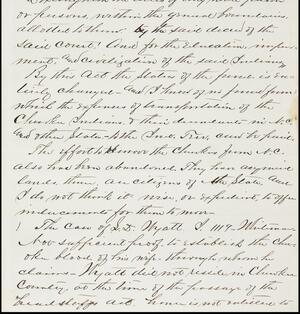 or persons, within the general boundaries
allotted to them by the said decree of the
Said Court, And for the Education, improve-
ment, and civilization of the said Indians
By this Act the Status of the fund is en-
tirely changed and I know of no fund from
which the expenses of transportation of the
Cherokee Indians, & their descendants in N.C.
and other States to the Ind. Ter. can be paid.
The effort to remove the Cherokees from N.C.
also has been abandoned. They have acquired
lands there, are citizens of the State, and
I do not think it wise, or expedient to offer
inducements for them to move
The case of J.D. Wyatt I 1119
Now sufficient proof to establish the Cher-
okee blood of his wife through whom he
claims. Wyatt did not reside in Cherokee
County, at the time of the passage of the
Act. hence is not entitled to